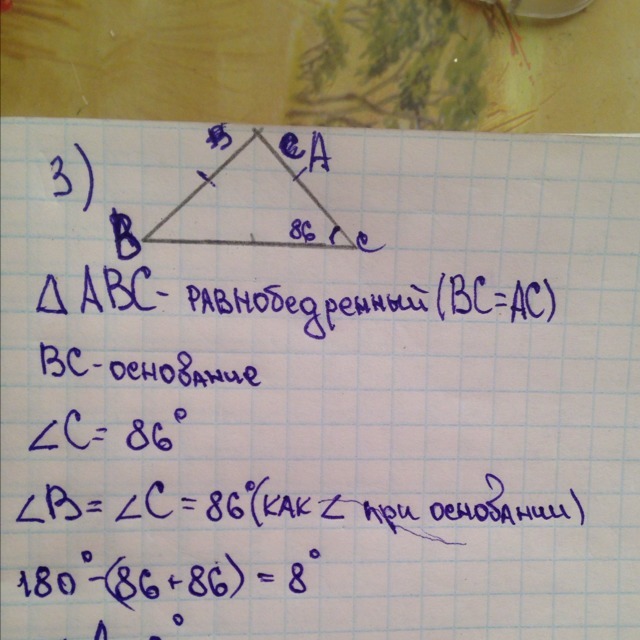 3)
A
B 86 C
Δ ABC - РАВНОбедренный (BC=AC)
BC - основание
∠C = 86°
∠B = ∠C = 86° (КАК ∠ при основании)
180° - (86 + 86) = 8°